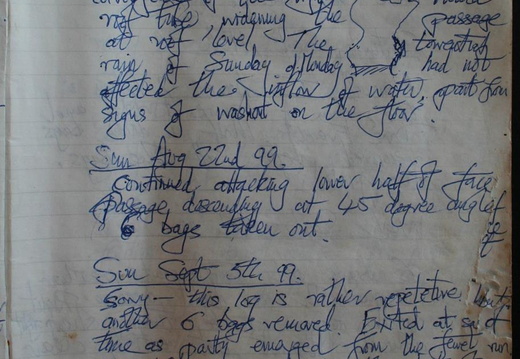 not time widening the passage
at roof level. The
rain of Sunday & Monday had not
affected the inflow of water, apart from
signs of washout on the floor.
Sun Aug 22nd 99.
Continued attacking lower half of face
passage descending at 45 degree angle
6 bags taken out.
Sun Sept 5th 99.
Sorry - this log is rather repetetive, but
another 6 bags removed. Exited at said
time as party emerged from the Jewel run